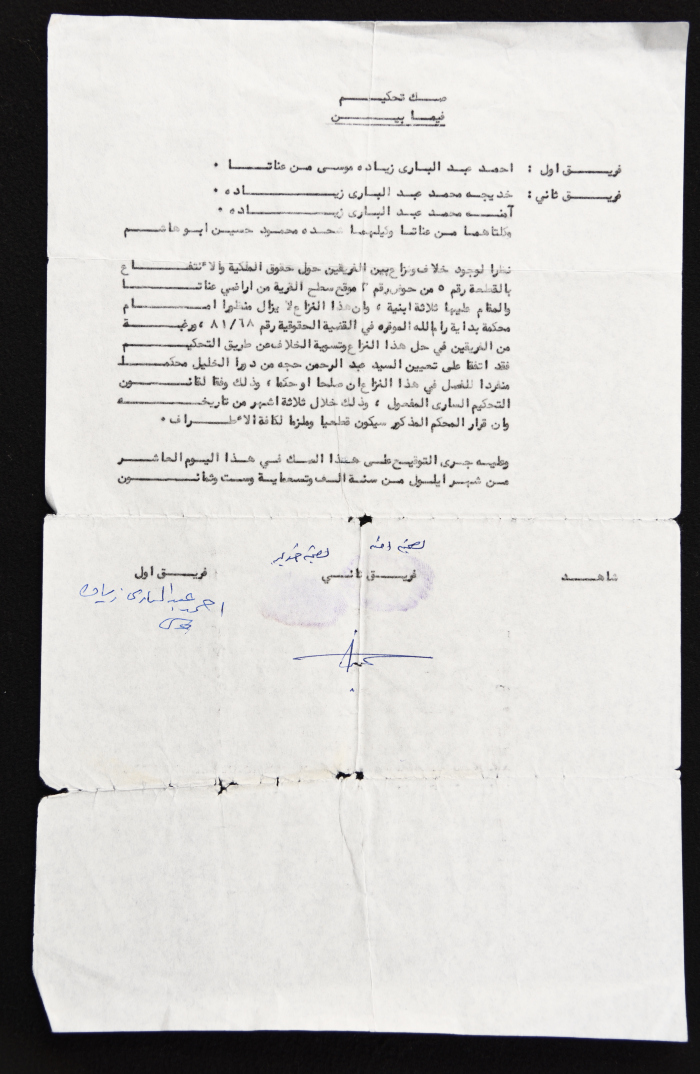 صك تحكيم
فيما بين
فريق اول : احمد عبد البارى زياده موسى من عناتا .
فريق ثاني : خديجه محمد عبد البارى زياده .
آمنه محمد عبد البارى زياده .
وكلتاهما من عناتا وكيلهما محمود حسين ابو هاشم
نظرا لوجود خلاف ونزاع بين الفريقين حول حقوق الملكية والانتفاع
بالقطعة رقم ٥ من حوض رقم ٢ موقع سطح القرية من اراضي عناتا
والمقام عليها ثلاثة ابنية ، وان هذا النزاع لا يزال منظورا امام
محكمة بداية رام الله الموقره في القضية الحقوقية رقم ٨١/٦٨ ، ورغبة
من الفريقين في حل هذا النزاع وتسوية الخلاف عن طريق التحكيم
فقد اتفقا على تعيين السيد عبد الرحمن حجه من دورا الخليل محكما
منفردا للفصل في هذا النزاع ان صلحا او حكما ، وذلك وفقا لقانون
التحكيم السارى المفعول ، وذلك خلال ثلاثة اشهر من تاريخه
وان قرار المحكم المذكور سيكون قطعيا وملزما لكافة الاطراف .
وعليه جرى التوقيع على هذا الصك في هذا اليوم العاشر
من شهر ايلول من سنة الف وتسعماية وست وثمانون
بصمة امنه
بصمة خديجه
شاهد
فريق ثاني
فريق اول
احمد عبد البارى زياده
موسى